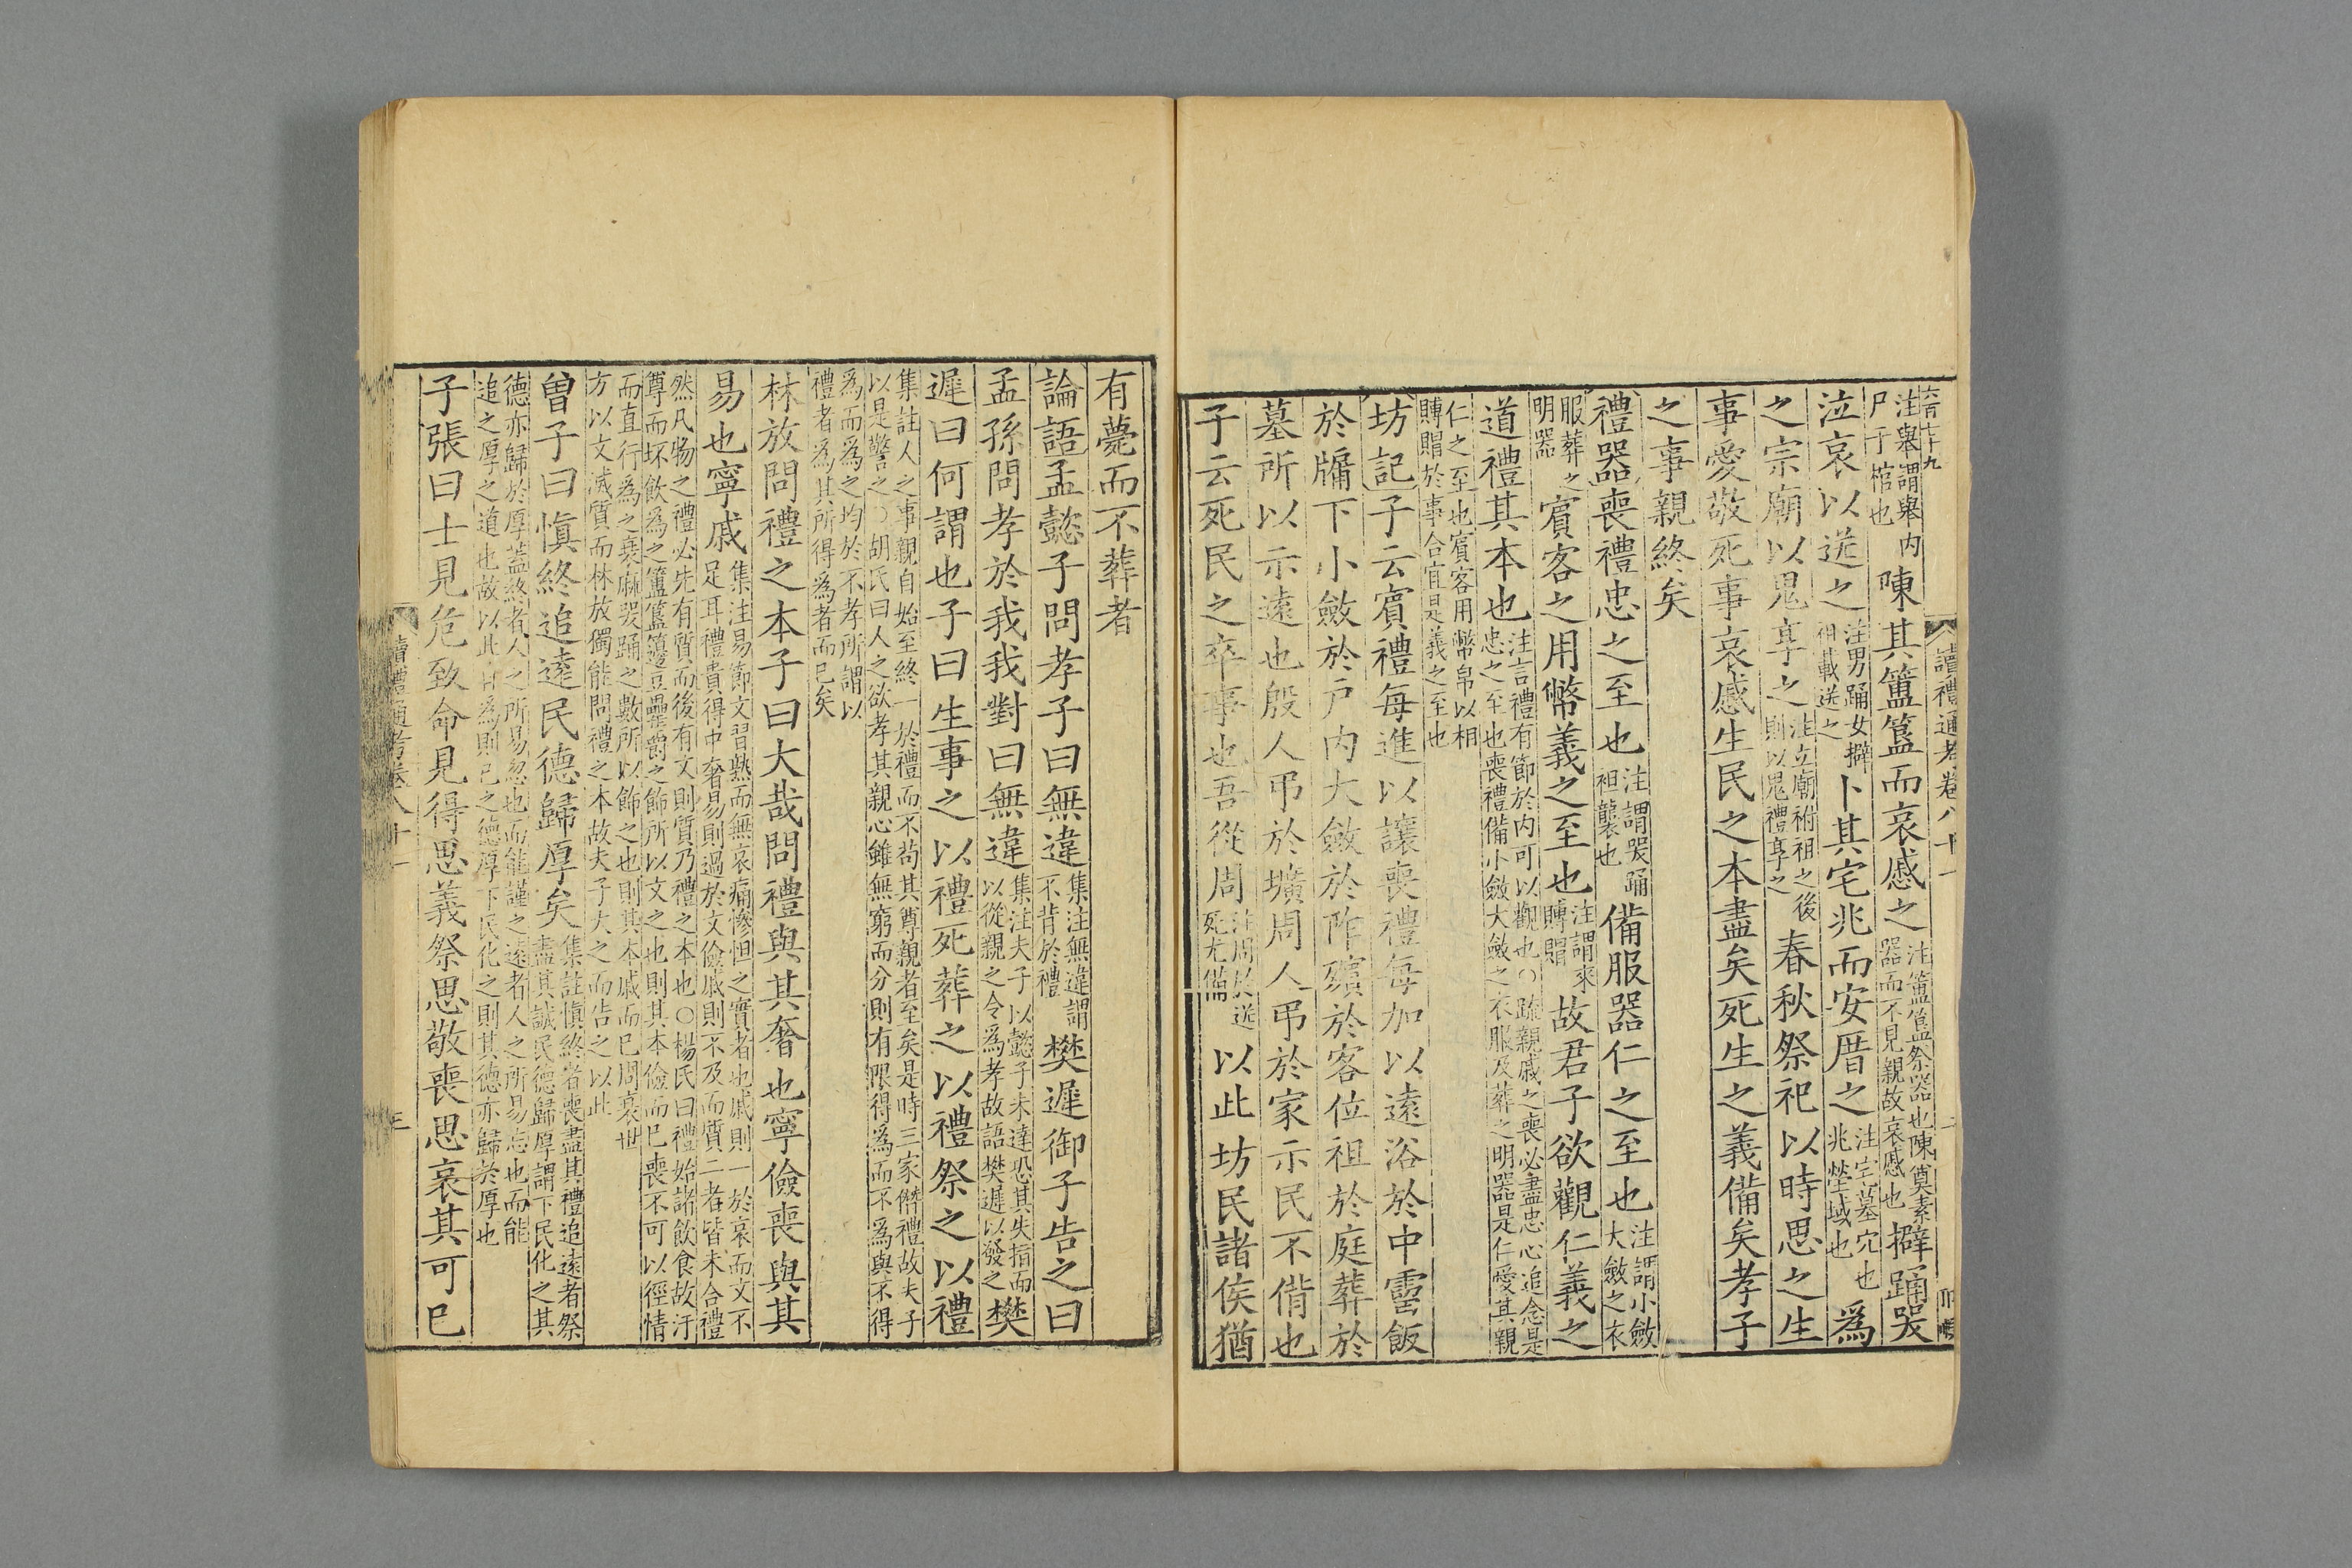 六百七十九
讀禮通考卷八十一 二
注舉謂舉內尸于棺也陳其簠簋而哀慼之注簠簋祭器也陳奠素器而不見親故哀慼也擗踊哭
泣哀以送之注男踊女擗祖載送之卜其宅兆而安厝之注宅墓穴也兆塋域也為
之宗廟以鬼享之注立廟祔祖之後則以鬼禮享之春秋祭祀以時思之生
事愛敬死事哀慼生民之本盡矣死生之義備矣孝子
之事親終矣
禮器喪禮忠之至也注謂哭踊袒襲也備服器仁之至也注謂小斂大斂之衣
服葬之明器賓客之用幣義之至也注謂來賻賵故君子欲觀仁義之
道禮其本也注言禮有節於內可以觀也○疏親戚之喪必盡忠心追念是忠之至也喪禮備小斂大斂之衣服及葬之明器是仁愛其親
仁之至也賓客用幣帛以相賻賵於事合宜是義之至也
坊記子云賓禮每進以讓喪禮每加以遠浴於中霤飯
於牖下小斂於戶內大斂於阼殯於客位祖於庭葬於
墓所以示遠也殷人弔於壙周人弔於家示民不偝也
子云死民之卒事也吾從周注周於送死尤備以此坊民諸侯猶
有薨而不葬者
論語孟懿子問孝子曰無違集注無違謂不背於禮樊遲御子告之曰
孟孫問孝於我我對曰無違集注夫子以懿子未達恐其失指而以從親之令為孝故語樊遲以發之樊
遲曰何謂也子曰生事之以禮死葬之以禮祭之以禮
集註人之事親自始至終一於禮而不苟其尊親者至矣是時三家僭禮故夫子以是警之○胡氏曰人之欲孝其親心雖無窮而分則有限得為而不為與不得
為而為之均於不孝所謂以禮者為其所得為者而已矣
林放問禮之本子曰大哉問禮與其奢也寧儉喪與其
易也寧戚集注易節文習熟而無哀痛慘怛之實者也戚則一於哀而文不足耳禮貴得中奢易則過於文儉戚則不及而質二者皆未合禮
然凡物之禮必先有質而後有文則質乃禮之本也○楊氏曰禮始諸飲食故汙尊而坏飲為之簠簋籩豆罍爵之飾所以文之也則其本儉而已喪不可以徑情
而直行為之衰麻哭踊之數所以飾之也則其本戚而已周衰世方以文滅質而林放獨能問禮之本故夫子大之而告之以此
曾子曰慎終追遠民德歸厚矣集註慎終者喪盡其禮追遠者祭盡其誠民德歸厚謂下民化之其
德亦歸於厚蓋終者人之所易忽也而能謹之遠者人之所易忘也而能追之厚之道也故以此自為則己之德厚下民化之則其德亦歸於厚也
子張曰士見危致命見得思義祭思敬喪思哀其可已
讀禮通考卷八十一 三